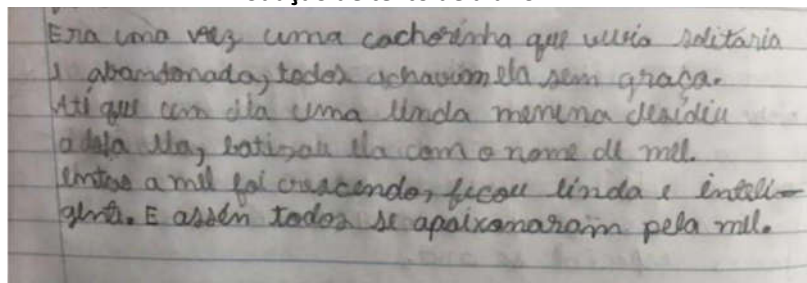 Era uma vez uma cachorinha que vivia solitária
e abandonada, todos achavam ela sem graça.
Até que um dia uma linda menina desidiu
adota ela, batizou ela com o nome de mel.
então a mel foi crescendo, ficou linda e inteli-
gente. E assim todos se apaixonaram pela mel.